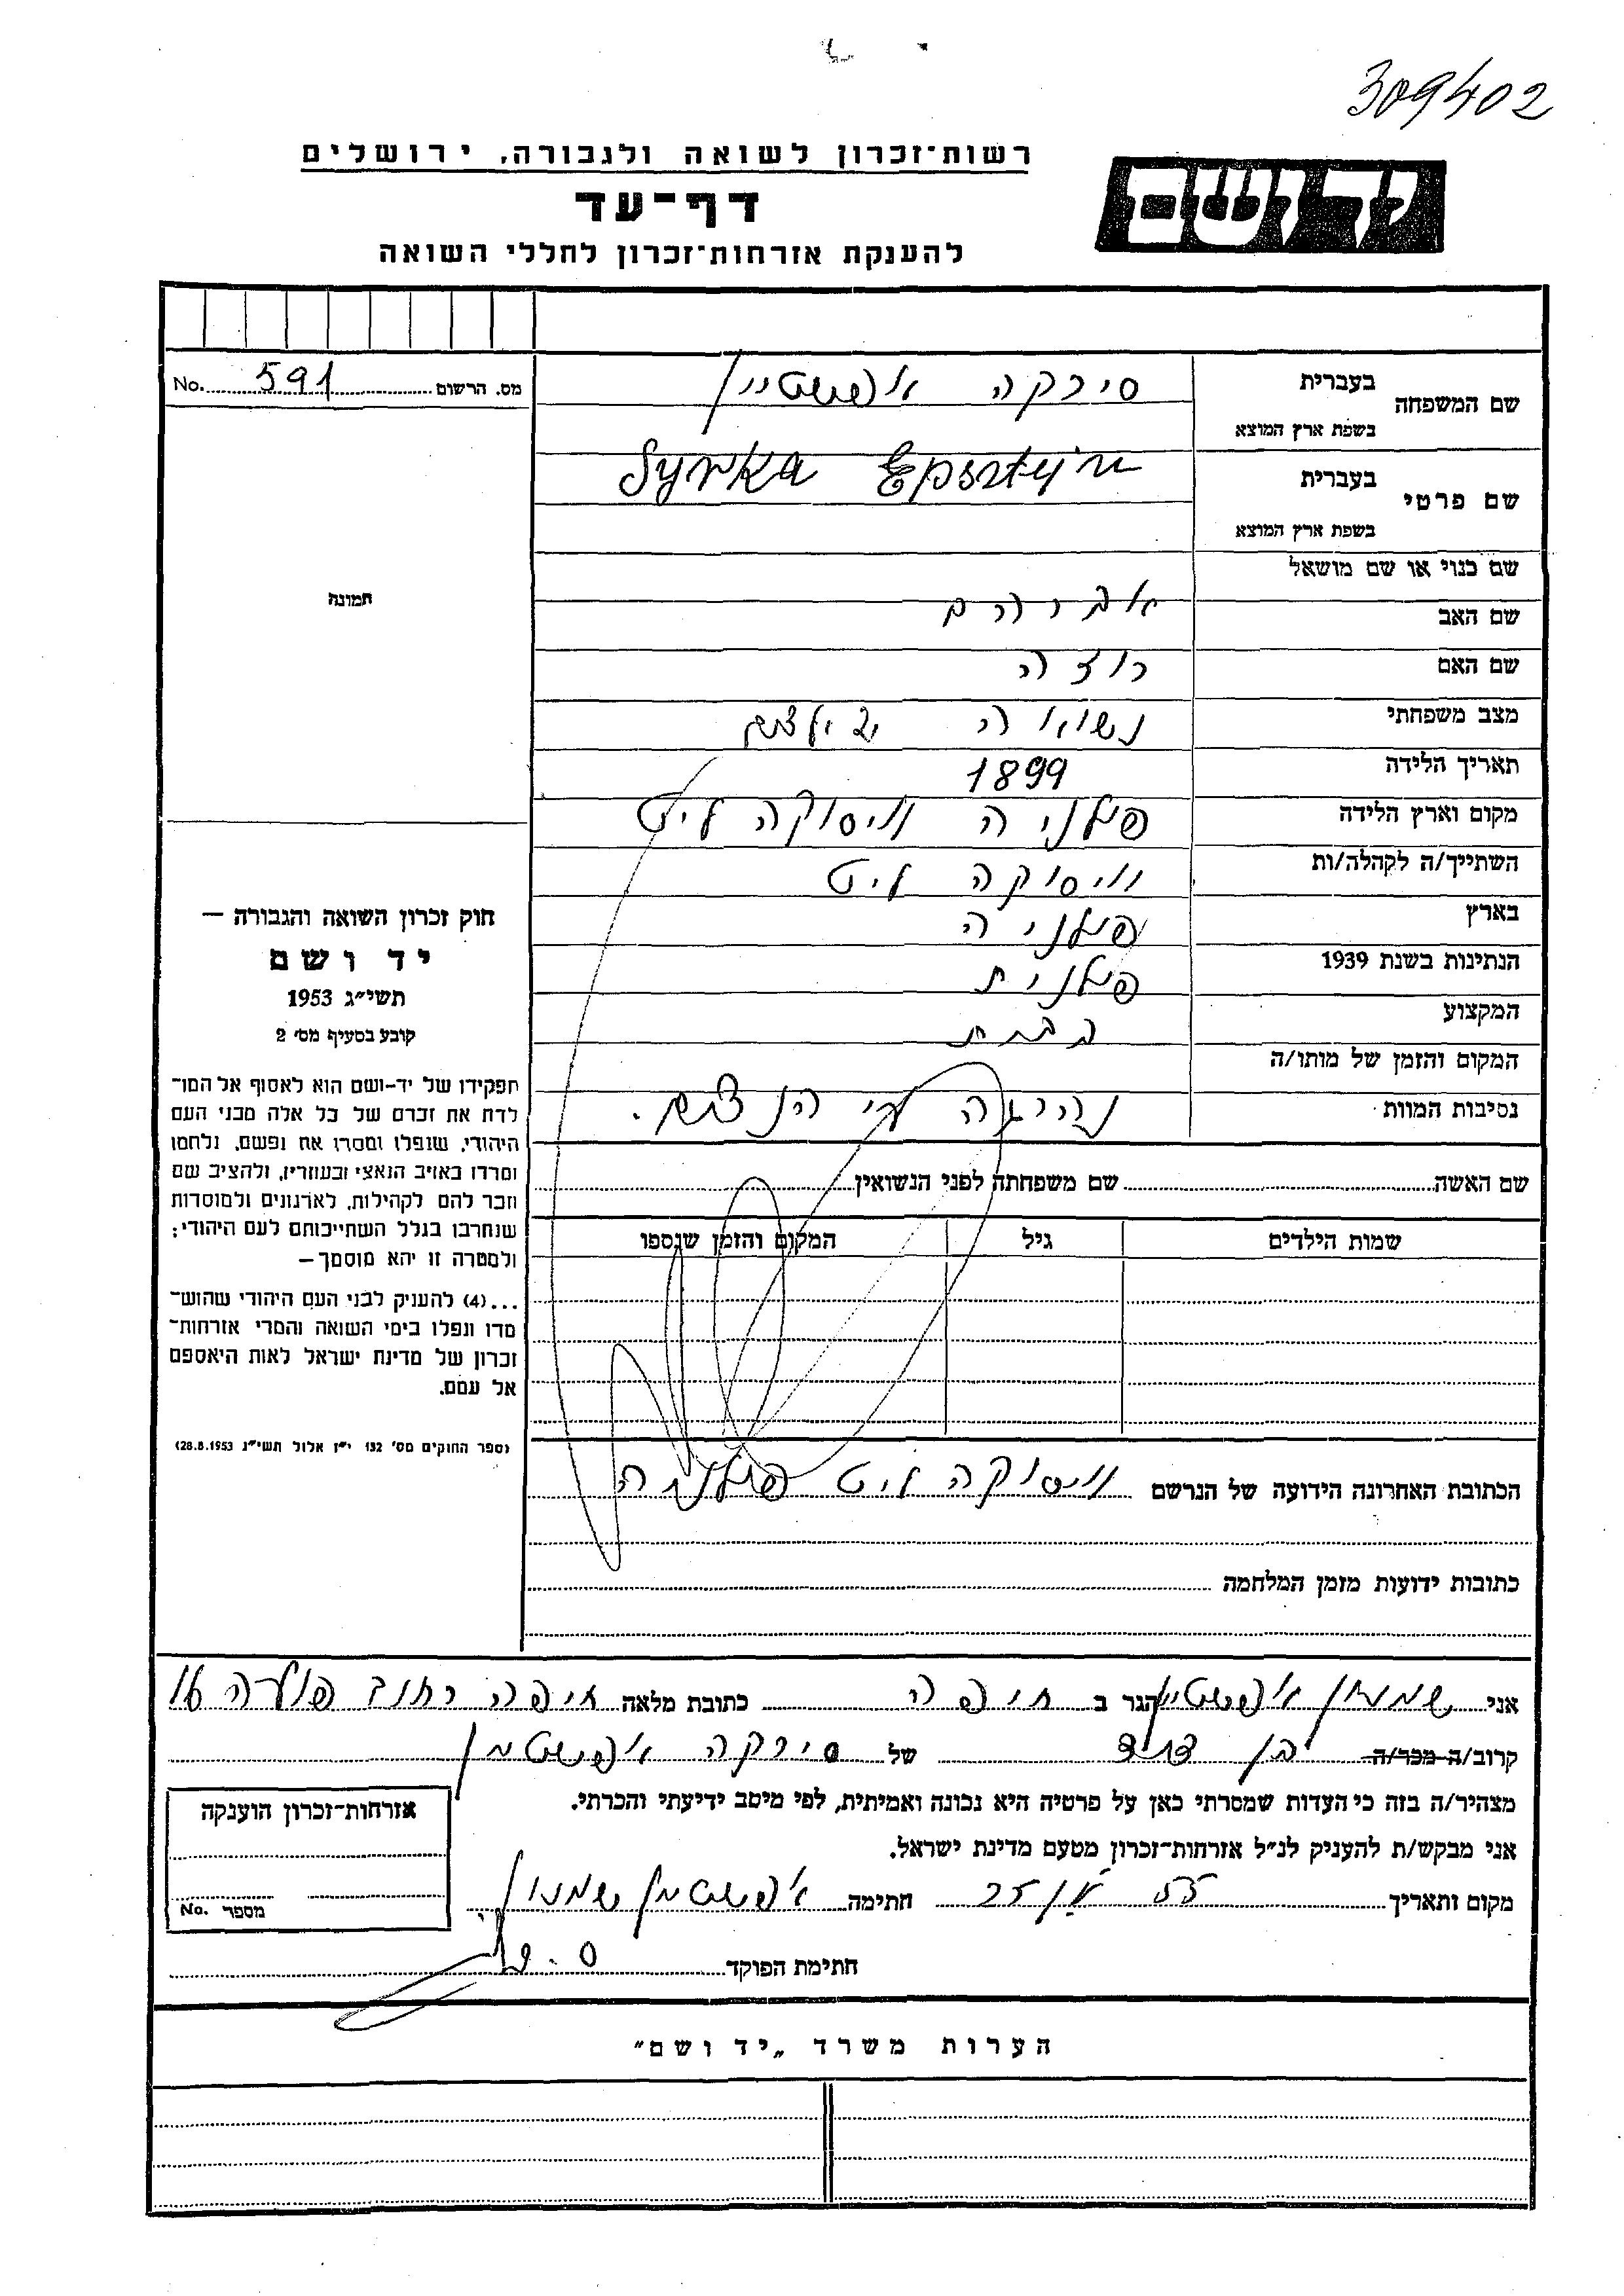 309402
רשות־זכרון לשואה ולגבורה, ירושלים
יד ושם
דף־עד
להענקת אזרחות־זכרון לחללי השואה
מס. הרשום 591 No.
שם המשפחה בעברית סירקה אפשטיין
בשפת ארץ המוצא
Syrka Epsztejn
שם פרטי בעברית
בשפת ארץ המוצא
שם כנוי או שם מושאל
שם האב אברהם
שם האם רוזה
מצב משפחתי נשואה
תאריך הלידה 1899
מקום וארץ הלידה פולניה וויסוקה ליט
השתייך/ה לקהלה/ות וויסוקה ליט
בארץ פולניה
הנתינות בשנת 1939 פולנית
המקצוע
המקום והזמן של מותו/ה
נסיבות המוות נהרגה ע״י הנאצים.
תמונה
חוק זכרון השואה והגבורה —
יד ושם
תשי״ג 1953
קובע בסעיף מס׳ 2
תפקידו של יד-ושם הוא לאסוף אל המו־
לדת את זכרם של כל אלה מבני העם
היהודי, שנפלו ומסרו את נפשם, נלחמו
ומרדו באויב הנאצי ובעוזריו, ולהציב שם
וזכר להם לקהילות, לארגונים ולמוסדות
שנחרבו בגלל השתייכותם לעם היהודי;
ולמטרה זו יהא מוסמך—
...(4) להעניק לבני העם היהודי שהוש־
מדו ונפלו בימי השואה והמרי אזרחות־
זכרון של מדינת ישראל לאות היאספם
אל עמם.
(ספר החוקים מס׳ 132 י״ז אלול תשי״ג 28.8.1953)
שם האשה שם משפחתה לפני הנשואין
שמות הילדים גיל המקום והזמן שנספו
הכתובת האחרונה הידועה של הנרשם וויסוקה ליט פולניה
כתובות ידועות מזמן המלחמה
אני שמעון אפשטיין הגר ב חיפה כתובת מלאה חיפה רחוב
קרוב/ה מכר/ה בן דוד של סירקה אפשטיין
מצהיר/ה בזה כי העדות שמסרתי כאן על פרטיה היא נכונה ואמיתית, לפי מיטב ידיעתי והכרתי.
אני מבקש/ת להעניק לנ״ל אזרחות־זכרון מטעם מדינת ישראל.
מקום ותאריך חתימה אפשטיין שמעון
חתימת הפוקד
אזרחות־זכרון הוענקה
מספר No.
הערות משרד „יד ושם״